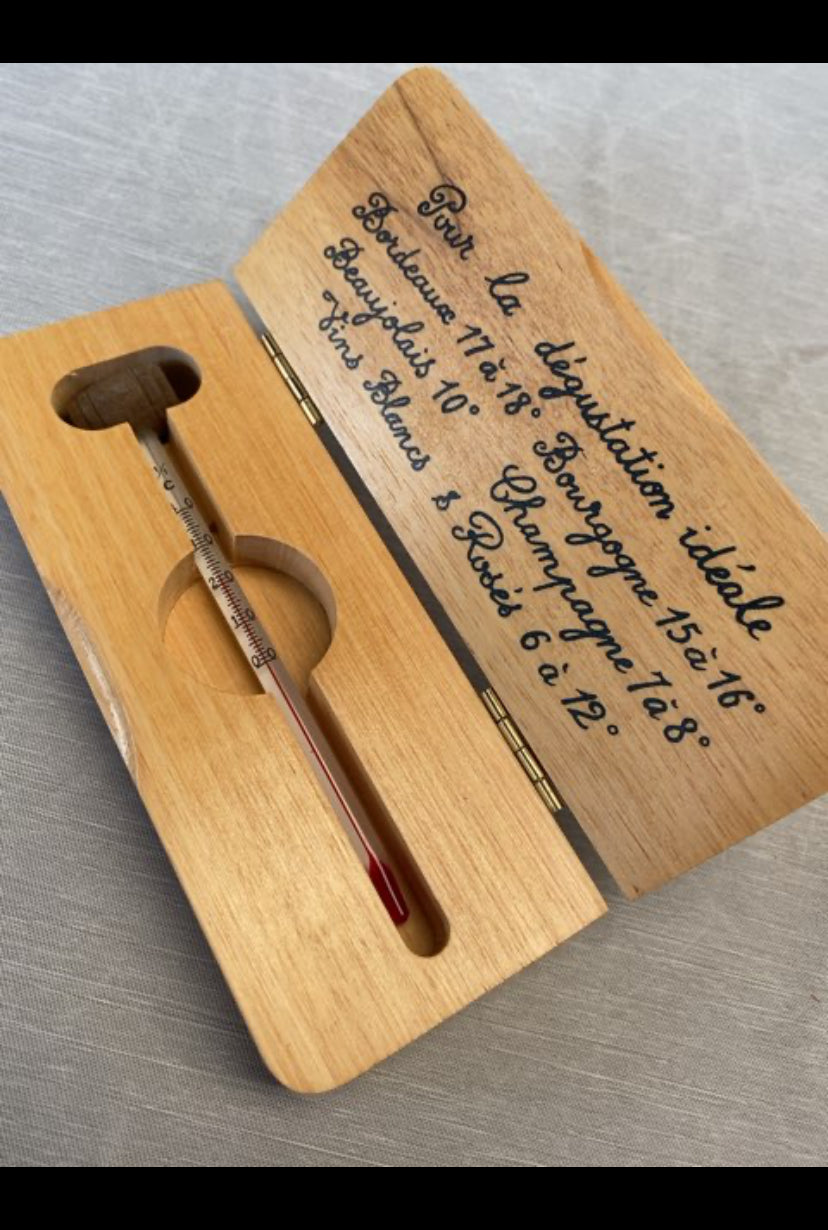 Pour la dégustation idéale
Bordeaux 17 à 18° Bourgogne 15 à 16°
Beaujolais 10° Champagne 7 à 8°
Vins Blancs & Rosés 6 à 12°
°C